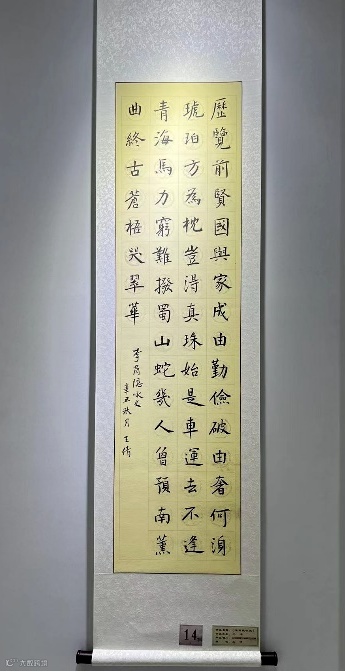 歷覽前賢國與家成由勤儉破由奢何湏
琥珀方為枕豈淂真珠始是車運去不逢
青海馬力窮難撥蜀山蛇幾人曾預南薰
曲終古蒼梧哭翠華
李商隱咏史
辛丑秋月 王倩
14